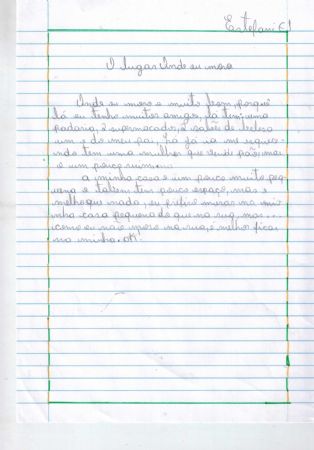 Estefani 61
O lugar Onde eu moro
Onde eu moro e muito bom, porquê
lá eu tenho muitos amigos, lá tem: uma
padaria, 2 supermacados, 2 salões de beleza
um e do meu pai, há já ia me esquecendo
ndo tem uma mulher que vende pão, mas
e um pouco ruim...
a minha casa e um pouco muito peq
uena e talvez tem pouco espaço, mas e
melhoque nada, eu prefiro morar na mi
nha casa pequena do que na rua, mas...
como eu não moro na rua, e melhor ficar
na minha. ok!